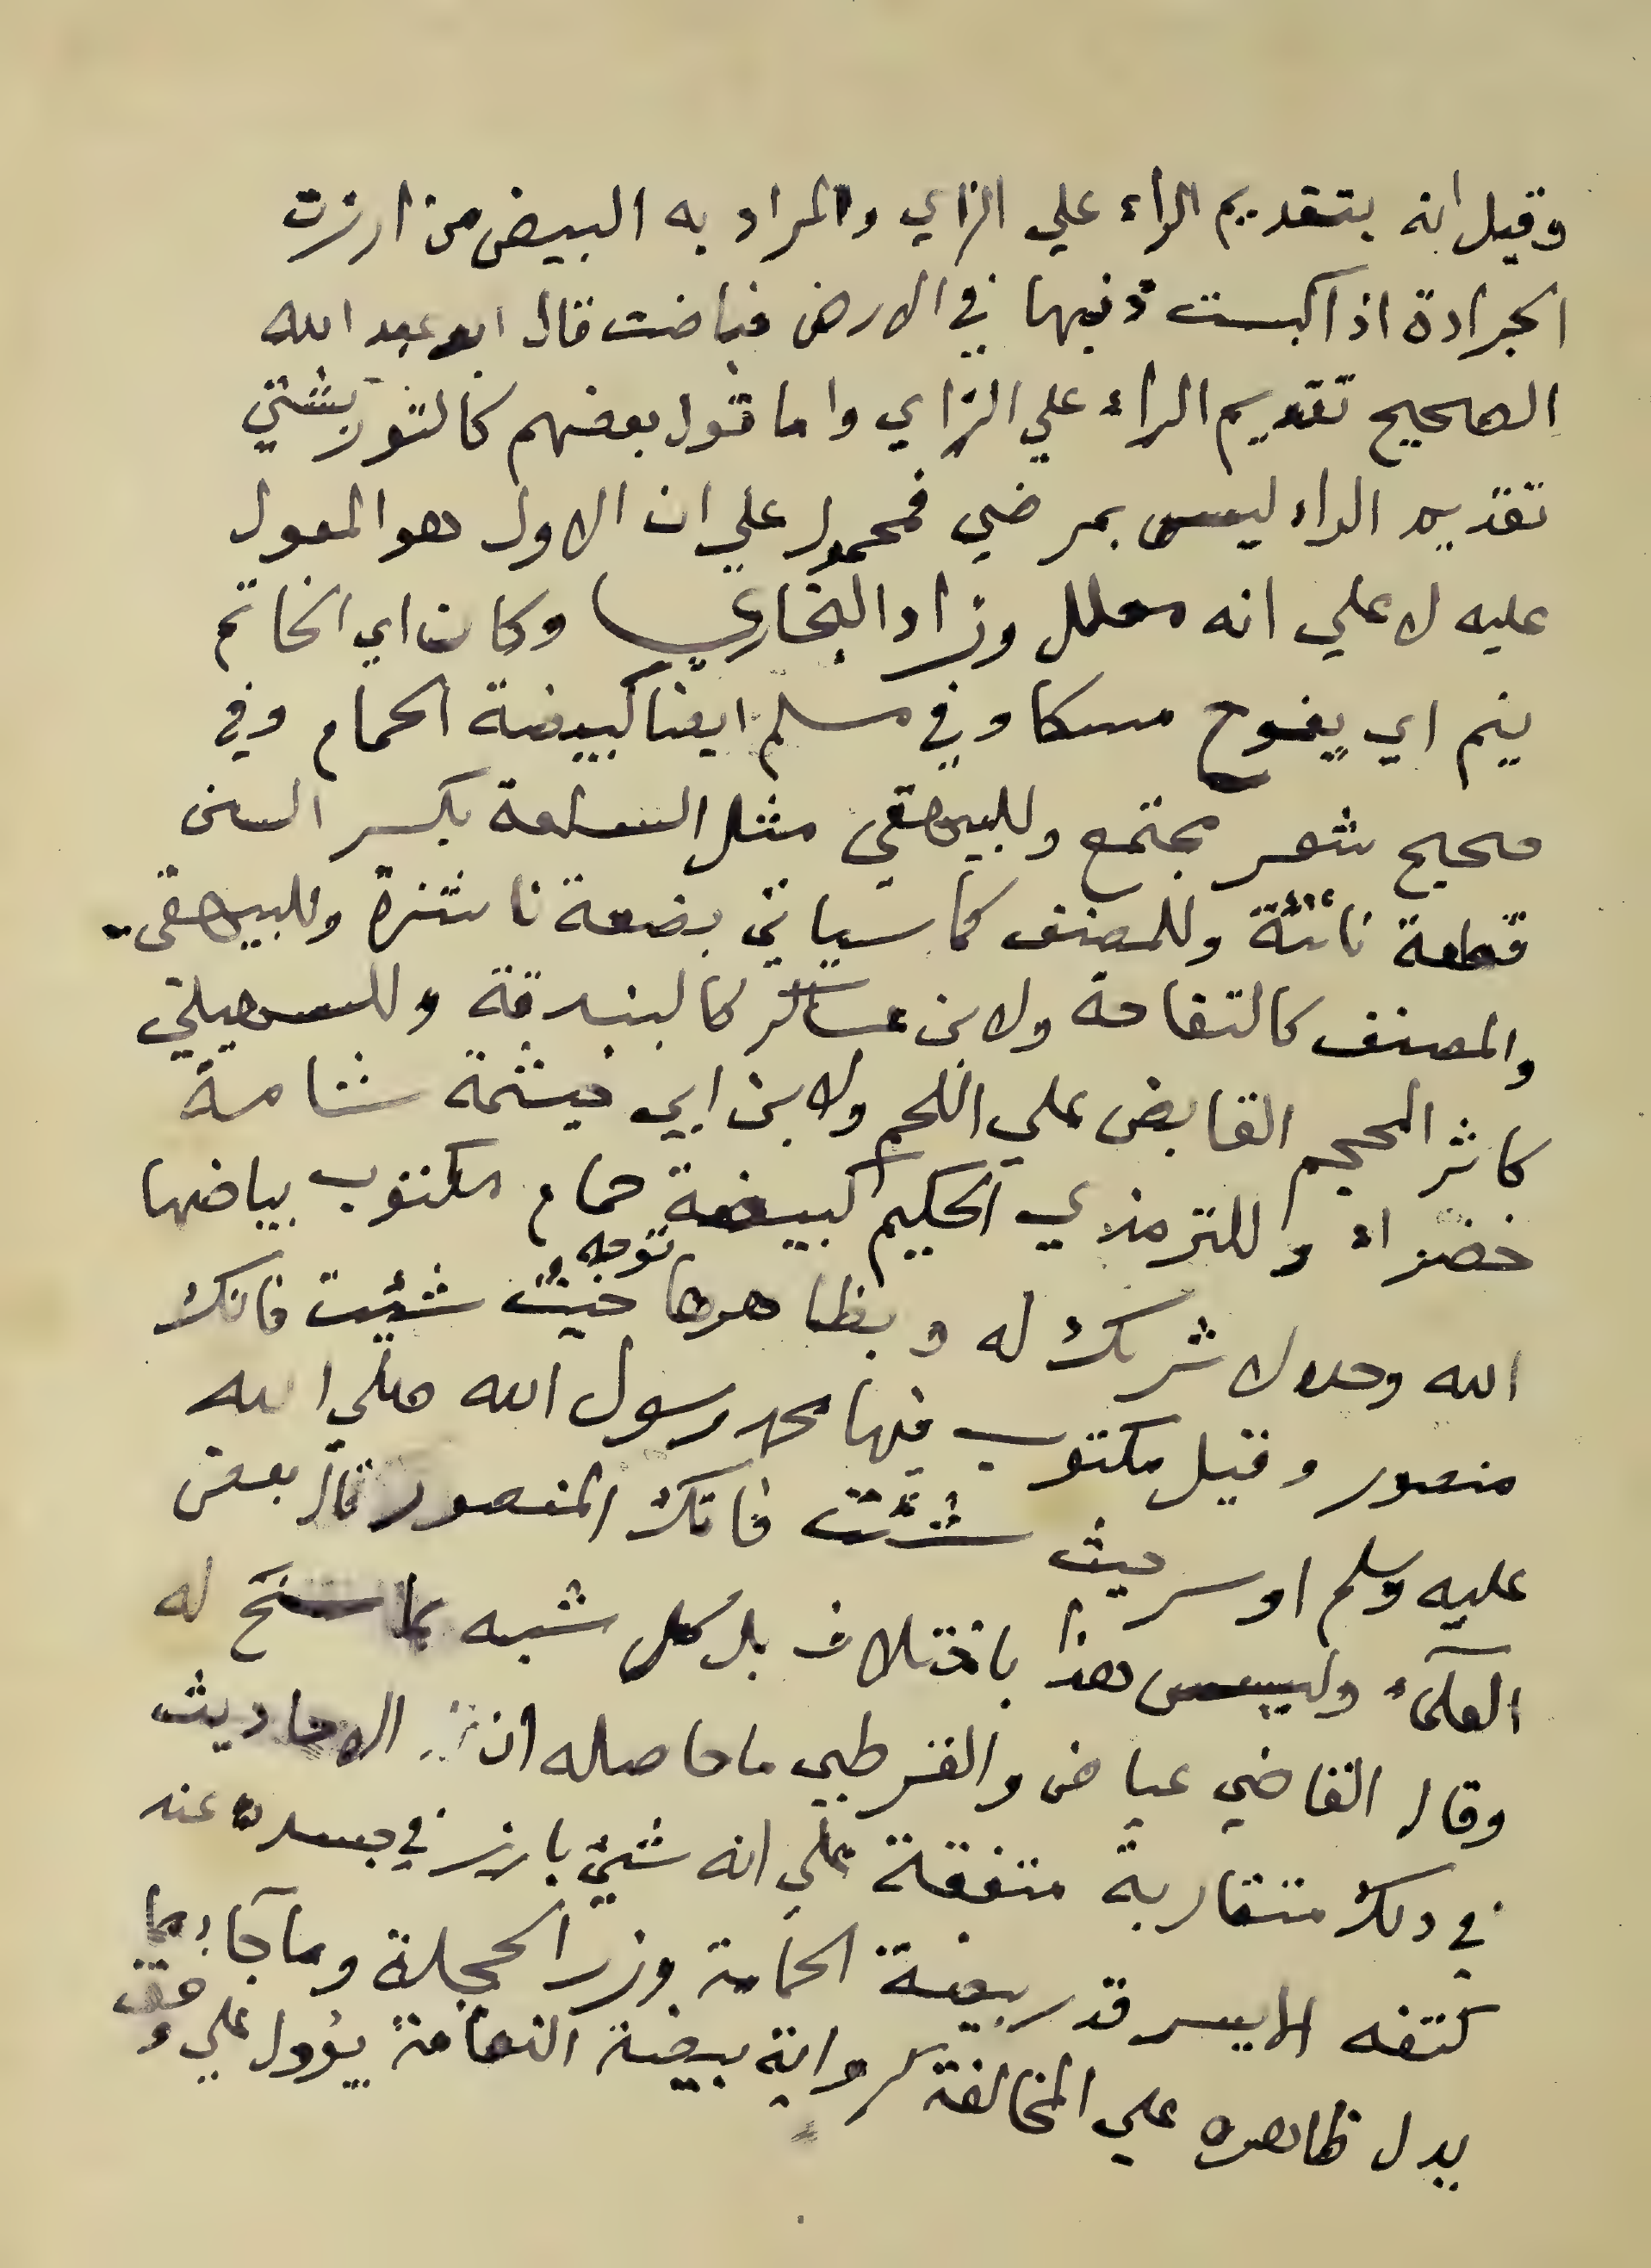 وقيل انه بتقديم الراء علي الزاي والمراد به البيض من ارزت
الجرادة اذا كبست ذنبها في الارض فباضت قال ابو عبد الله
الصحيح تقديم الراء علي الزاي واما قول بعضهم كالتوربشتي
تقديم الراء ليس بمرضي فمحمول علي ان الاول هو المعول
عليه لا علي انه معلل وزاد البخاري وكان اي الخاتم
ينم اي يفوح مسكا وفي مسلم ايضا كبيضة الحمام وفي
صحيح شعر مجتمع وللبيهقي مثل السلعة بكسر السين
قطعة ناتئة وللمصنف كما سياتي بضعة ناشزة وللبيهقي
والمصنف كالتفاحة ولابن عساكر كالبندقة وللسهيلي
كاثر المحجم القابض علي اللحم ولابن ابي خيثمة شامة
خضراء وللترمذي الحكيم كبيضة حمام مكتوب بباضها
الله وحده لا شريك له وبظاهرها توجه حيث شئت فانك
منصور وقيل مكتوب فيها محمد رسول الله صلي الله
عليه وسلم او سر حيث شئت فانك المنصور قال بعض
العلمآء وليس هذا باختلاف بل كل شبه بما سنح له
وقال القاضي عياض والقرطبي ما حاصله ان الاحاديث
في ذلك متقاربة متفقة علي انه شيئ بارز في جسده عند
كتفه الايسر قدر بيضة الحمامة وزر الحجلة وما جآء مما
يدل ظاهره علي المخالفة كرواية بيضة النعامة يؤول علي وفق